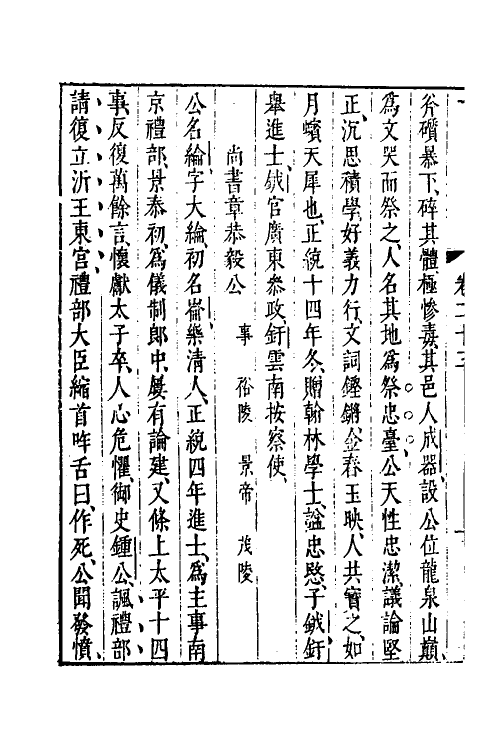 卷二十三
斧礩暴下碎其體極慘毒其邑人成器設公位龍泉山巔
爲文哭而祭之人名其地爲祭忠臺公天性忠潔議論堅
正沉思積學好義力行文詞鏗鏘金舂玉映人共寶之如
月蠙天犀也正統十四年冬贈翰林學士諡忠愍子鉞釪
舉進士鉞官廣東叅政釪雲南按察使
尚書章恭毅公 事 裕陵 景帝 茂陵
公名綸字大綸初名崙樂清人正統四年進士爲主事南
京禮部景泰初爲儀制郎中屢有論建又條上太平十四
事反復萬餘言懷獻太子卒人心危懼御史鍾公諷禮部
請復立沂王東宮禮部大臣縮首咋舌曰作死公聞發憤